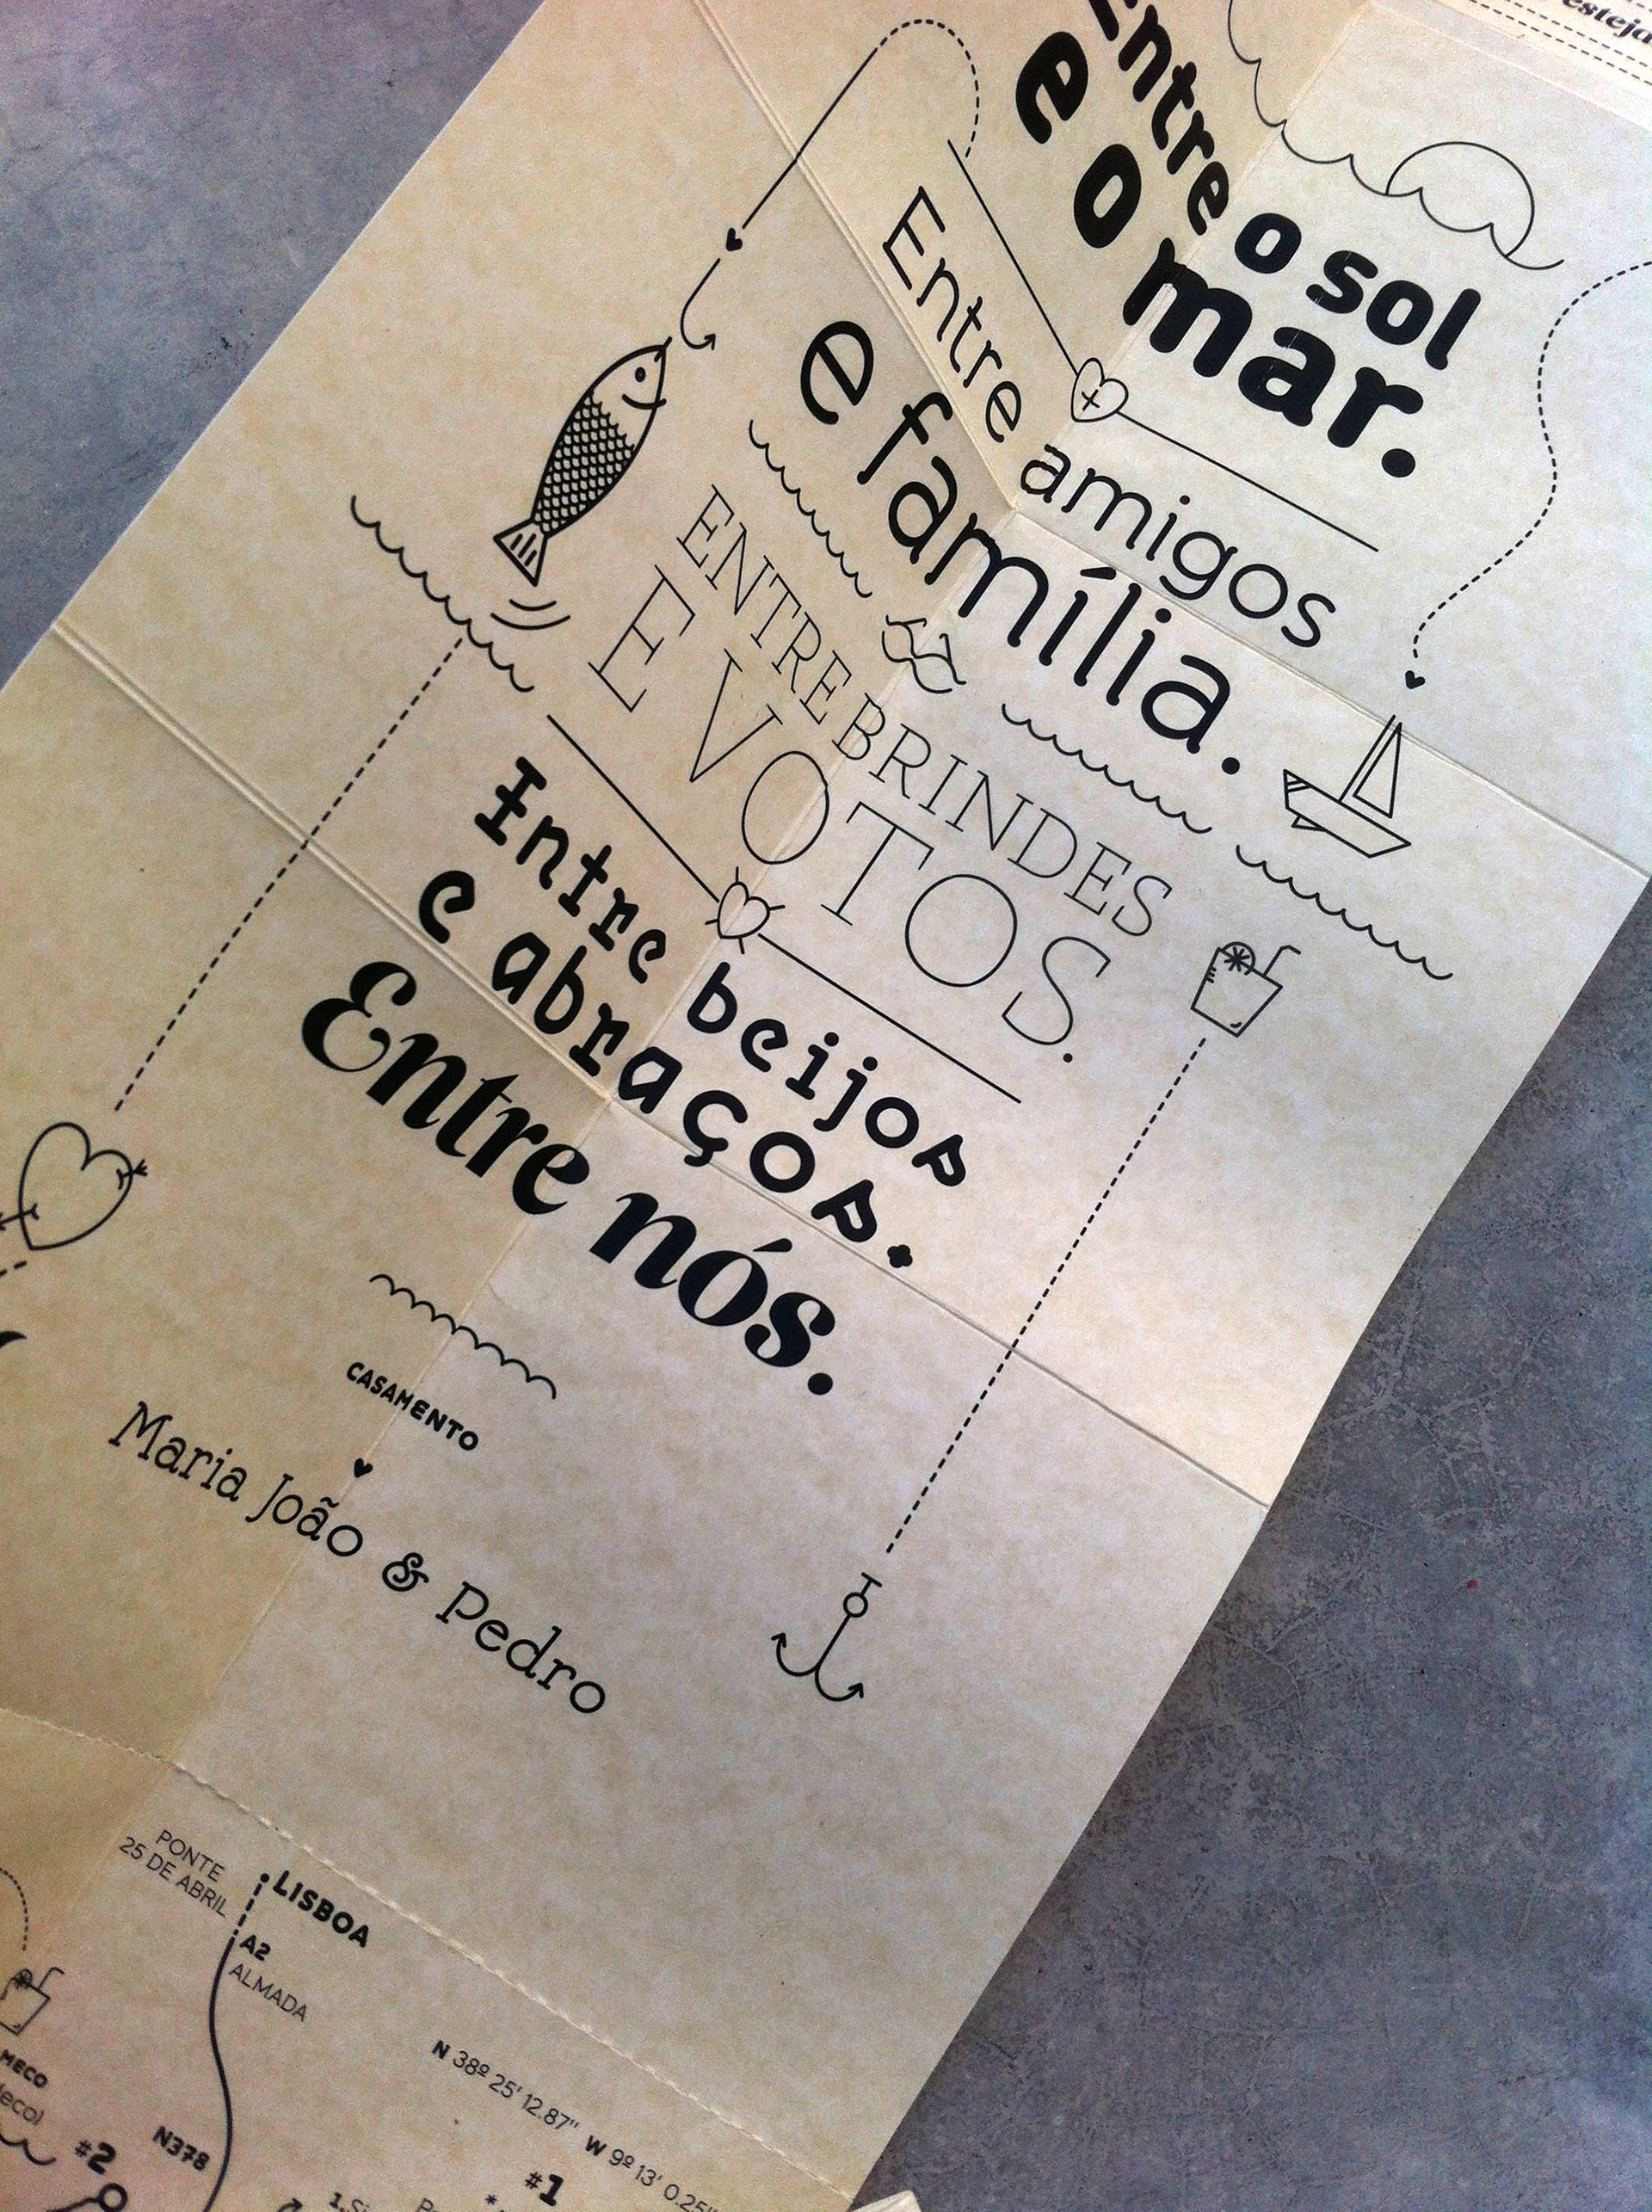 esteja
Entre o sol
e o mar.
Entre amigos
e família.
ENTRE BRINDES
E VOTOS.
Entre beijos
e abraços.
Entre nós.
CASAMENTO
Maria João & Pedro
PONTE
25 DE ABRIL
LISBOA
A2
ALMADA
MECO
N 38º 25' 12.87'' W 9º 13' 0.25''
#2
N378
#1